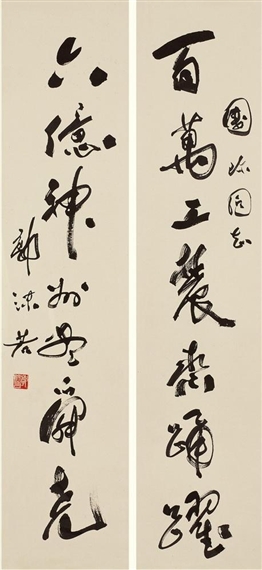 國珍同志
百萬工農齊踊躍
六億神州盡舜堯
郭沫若